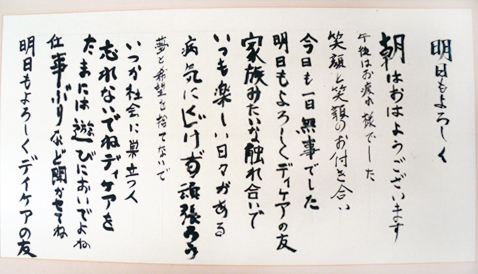 明日もよろしく
朝はおはようございます
午後はお疲れ様でした
笑顔と笑顔のお付き合い
今日も一日無事でした
明日もよろしくディケアの友
家族みたいな触れ合いで
いつも楽しい日々がある
病気にまけず頑張ろう
夢と希望を捨てないで
いつか社会に巣立つ人
忘れないでねディケアを
たまには遊びにおいでよね
仕事ぶりなど聞かせてね
明日もよろしくディケアの友